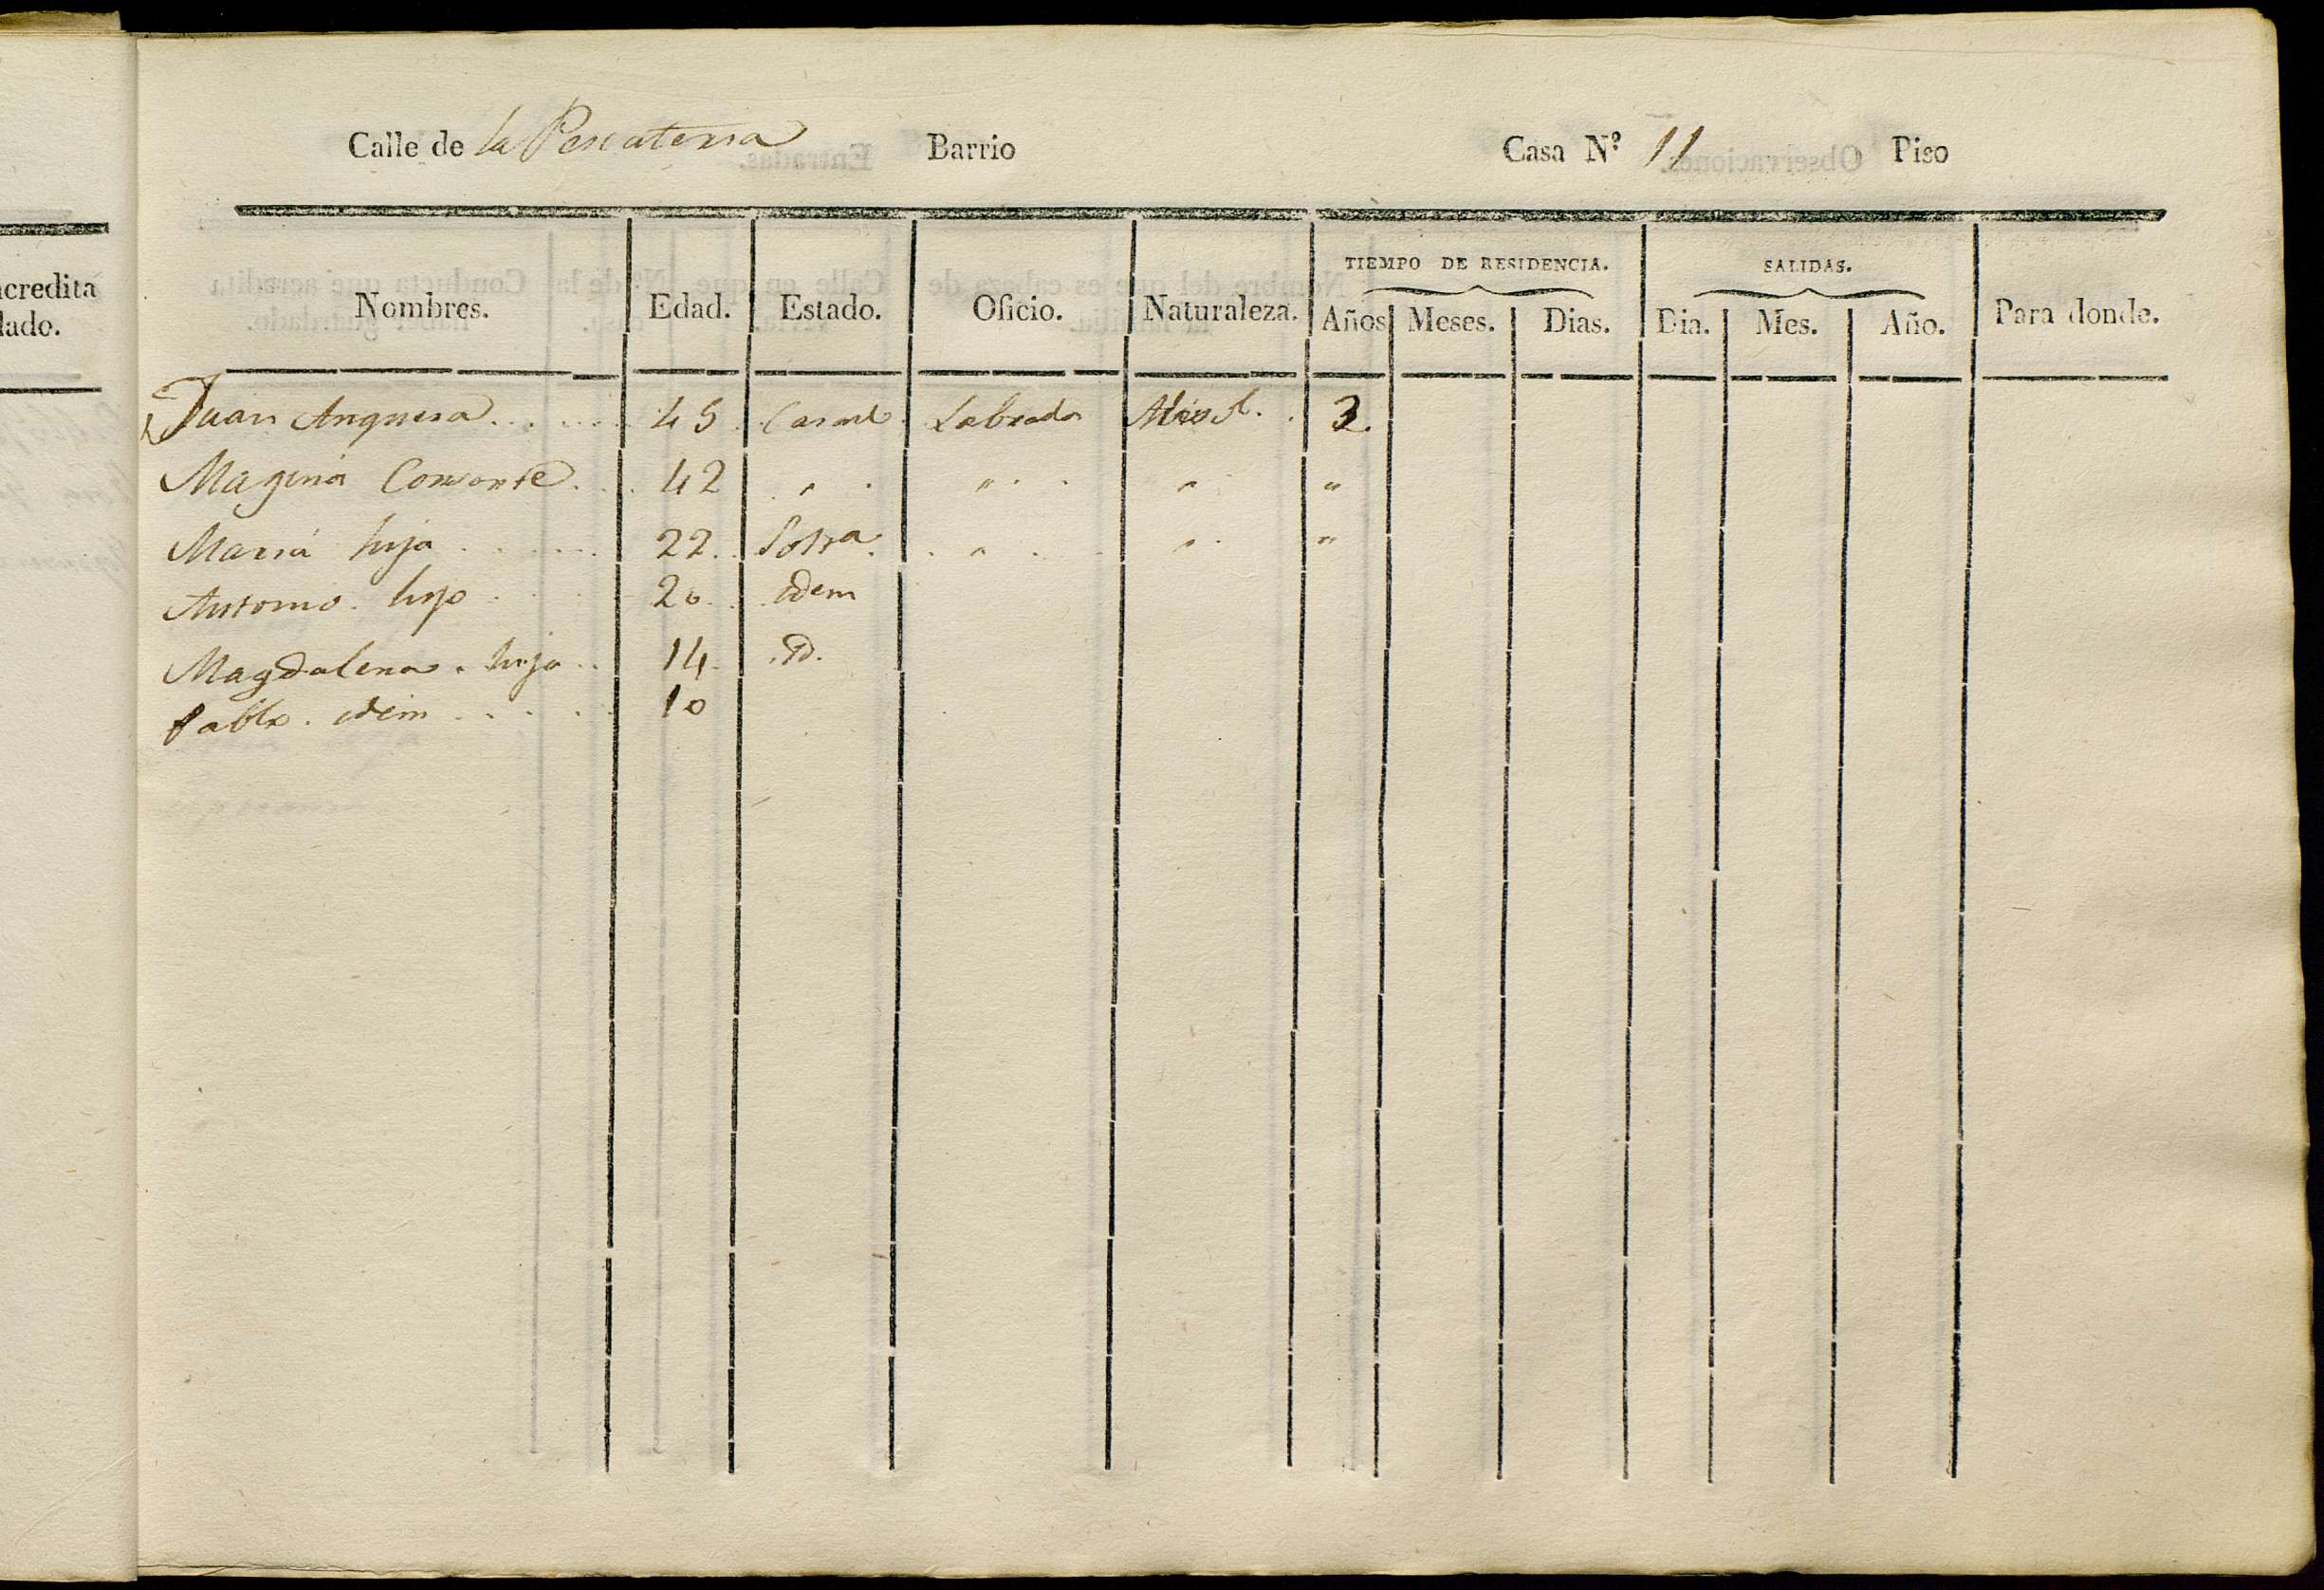 acredita
lado.
Calle de la Pescateria Barrio Casa Nº 11 Piso
TIEMPO DE RESIDENCIA. SALIDAS.
Nombres. Edad. Estado. Oficio. Naturaleza. Años Meses. Dias. Dia. Mes. Año. Para donde.
Juan Anguera....... 45. Casad. Labrador . 3.
Magina Consorte... 42 . " . " . . " "
Maria hija ...... 22.. Solra. . " . . " . "
Antonio. hijo . . . 20. . idem
Magdalena. hija.. 14. .id.
Pablo. idem ..... 10